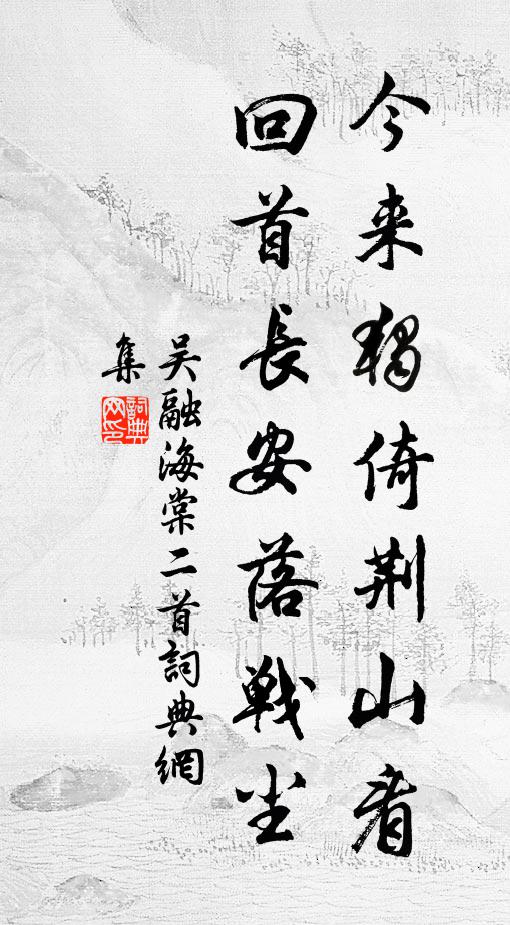 今来独倚荆山看
回首長安落戰尘
吴融海棠二首詞典網
集
詞典
网印